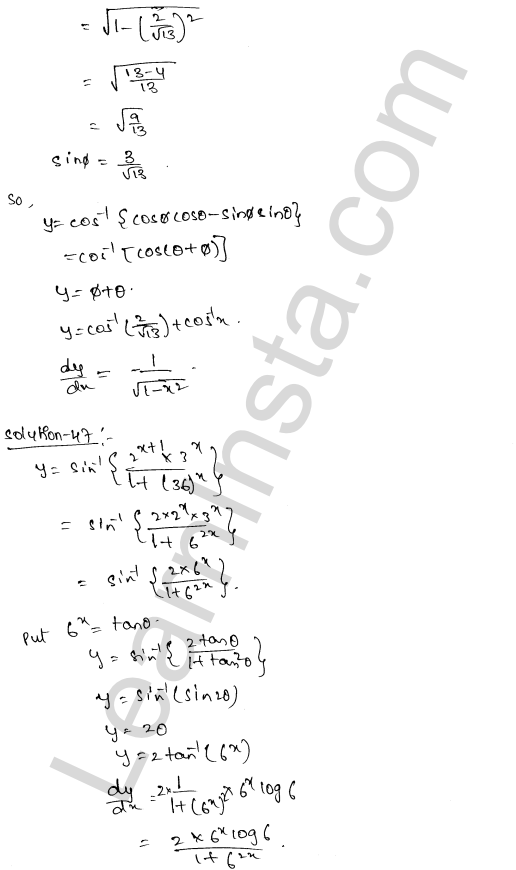 = √(1 - (2/√13)²)
= √((13-4)/13)
= √(9/13)
sinø = 3/√13 .
So,
y = cos⁻¹ {cosø cosθ - sinø sinθ}
= cos⁻¹ [cos(θ + ø)]
y = ø + θ .
y = cos⁻¹ (2/√13) + cos⁻¹x .
dy/dx = - 1/√(1-x²) .
Solution-47 :-
y = sin⁻¹ { (2^(x+1) × 3^x) / (1 + (36)^x) }
= sin⁻¹ { (2 × 2^x × 3^x) / (1 + 6^(2x)) }
= sin⁻¹ { (2 × 6^x) / (1 + 6^(2x)) } .
Put 6^x = tanθ .
y = sin⁻¹ { 2tanθ / (1 + tan²θ) }
y = sin⁻¹ (sin2θ)
y = 2θ
y = 2tan⁻¹ (6^x)
dy/dx = 2 × 1/(1 + (6^x)²) × 6^x log 6
= (2 × 6^x log 6) / (1 + 6^(2x)) .
LearnInsta.com